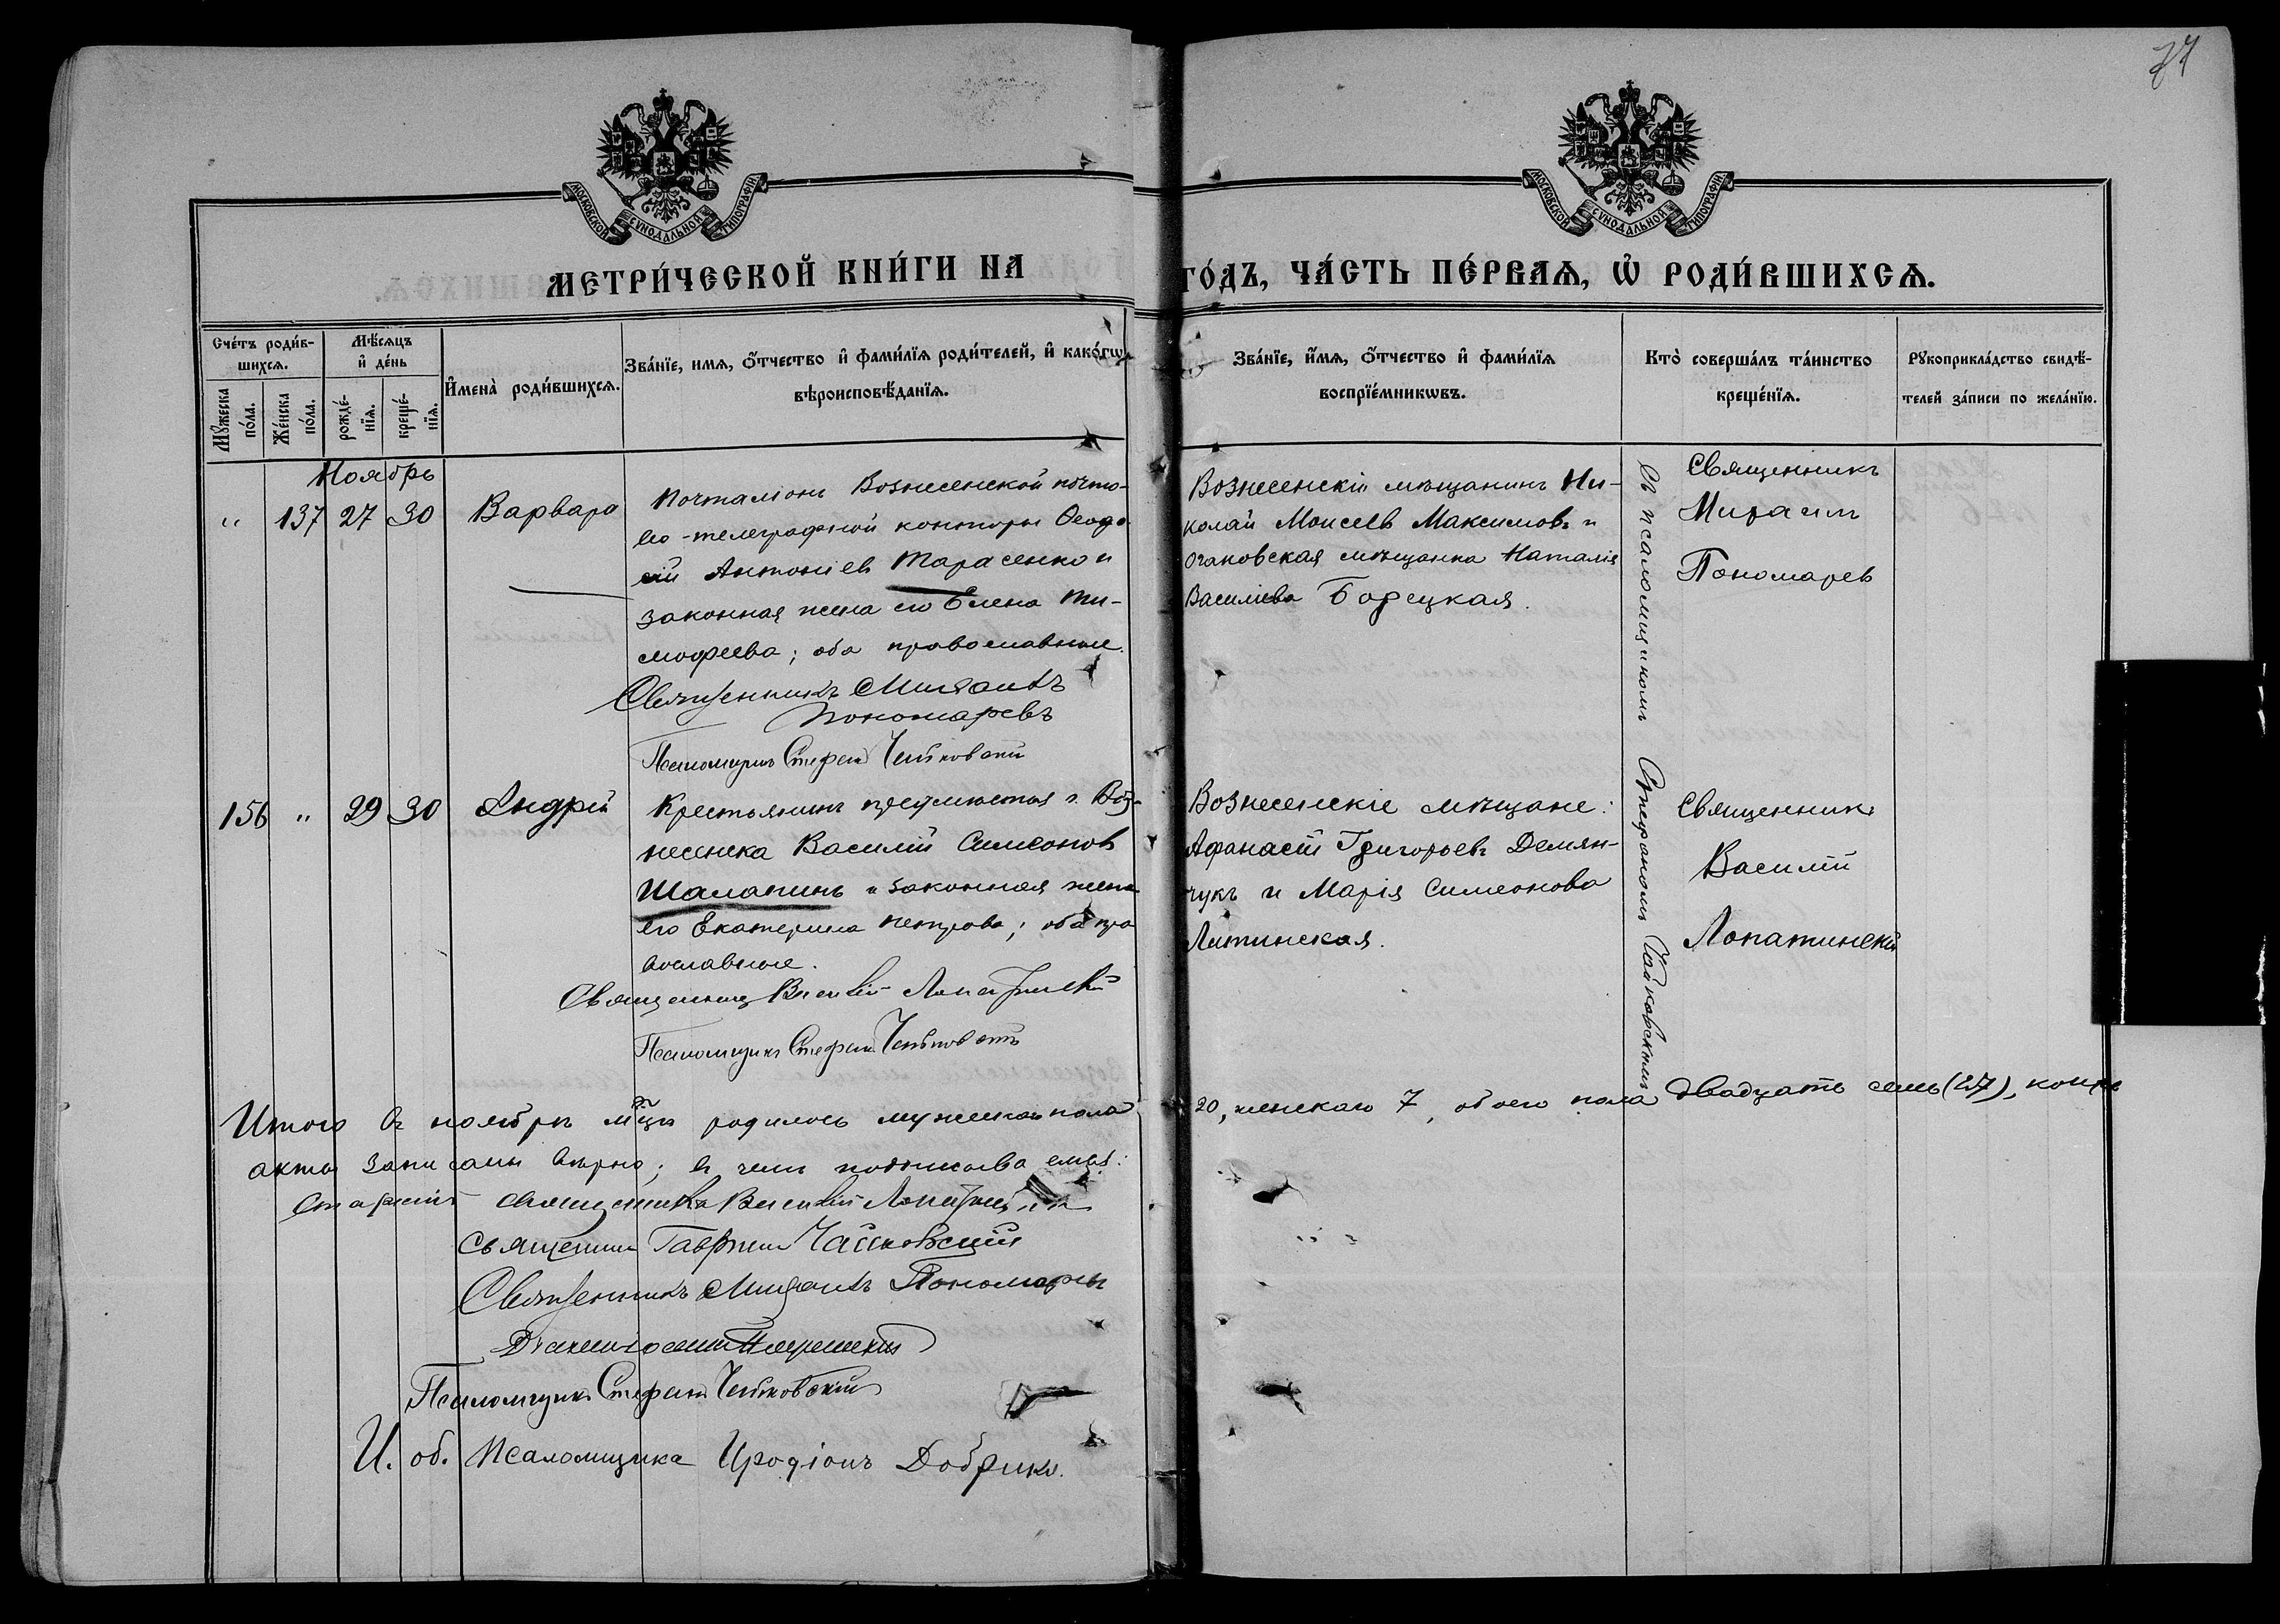 71
МОСКОВСКОЙ СѴНОДАЛЬНОЙ ТИПОГРАФІИ.
МОСКОВСКОЙ СѴНОДАЛЬНОЙ ТИПОГРАФІИ.
МЕТРИ́ЧЕСКОЙ КНИ́ГИ НА ГО́ДЪ, ЧА́СТЬ ПЕ́РВАѦ, Ѡ҆ РОДИ́ВШИХСѦ.
Сче́тъ роди́в-
шихсѧ.
Мꙋ́жеска по́ла.
Же́нска по́ла.
Мѣ́сѧцъ и҆ де́нь
рожде́-
нїѧ.
креще́-
нїѧ.
И҆мена̀ роди́вшихсѧ.
Зва́нїе, имѧ, ѻ҆́тчество и҆ фами́лїѧ роди́телей, и҆ како́гѡ
вѣроисповѣ́данїѧ.
Зва́нїе, и҆́мѧ, ѻ҆́тчество и҆ фами́лїѧ
воспрїе́мникѡвъ.
Кто̀ соверша́лъ та́инство
креще́нїѧ.
Рꙋкоприкла́дство свидѣ́-
телей за́писи по жела́нїю.
Ноябрь
" 137 27 30 Варвара
Почталіонъ Вознесенской почто-
во-телеграфной конторы Ѳеодо-
сій Антоніевъ Тарасенко и
законная жена его Елена Ти-
моѳеева; оба православные.
Священникъ Мисаилъ
Пономаревъ
Псаломщикъ Стефан Чайковскій
Вознесенскій мѣщанинъ Ни-
колай Моисеевъ Максимовъ и
Очаковская мѣщанка Наталія
Васильева Борецкая.
Священникъ
Мисаилъ
Пономарев
Съ псаломщикомъ Стефаномъ Чайковскимъ
156 " 29 30 Андрей
Крестьянинъ предмѣстья г. Воз-
несенска Василій Симеонов
Шалапинъ и законная жена
его Екатерина Петрова; оба пра
вославные.
Священник Василій Лопатинскій
Псаломщикъ Стефан Чайковскій
Вознесенскіе мѣщане:
Афанасій Григорьевъ Демян-
чукъ и Марія Симеонова
Литинская.
Священник
Василій
Лопатинскій
Итого въ ноябрѣ м-цѣ родилось мужескаго пола 20, женскаго 7, обоего пола двадцать семь (27), коихъ
акты записаны вѣрно; въ чемъ подписываемся:
Старшій священникъ Василій Лопатинскій
Священник Гавріил Чайковскій
Священникъ Мисаилъ Пономаревъ
Псаломщикъ Стефан Чайковскій
И. об. Псаломщика Иродіонъ Добрик.